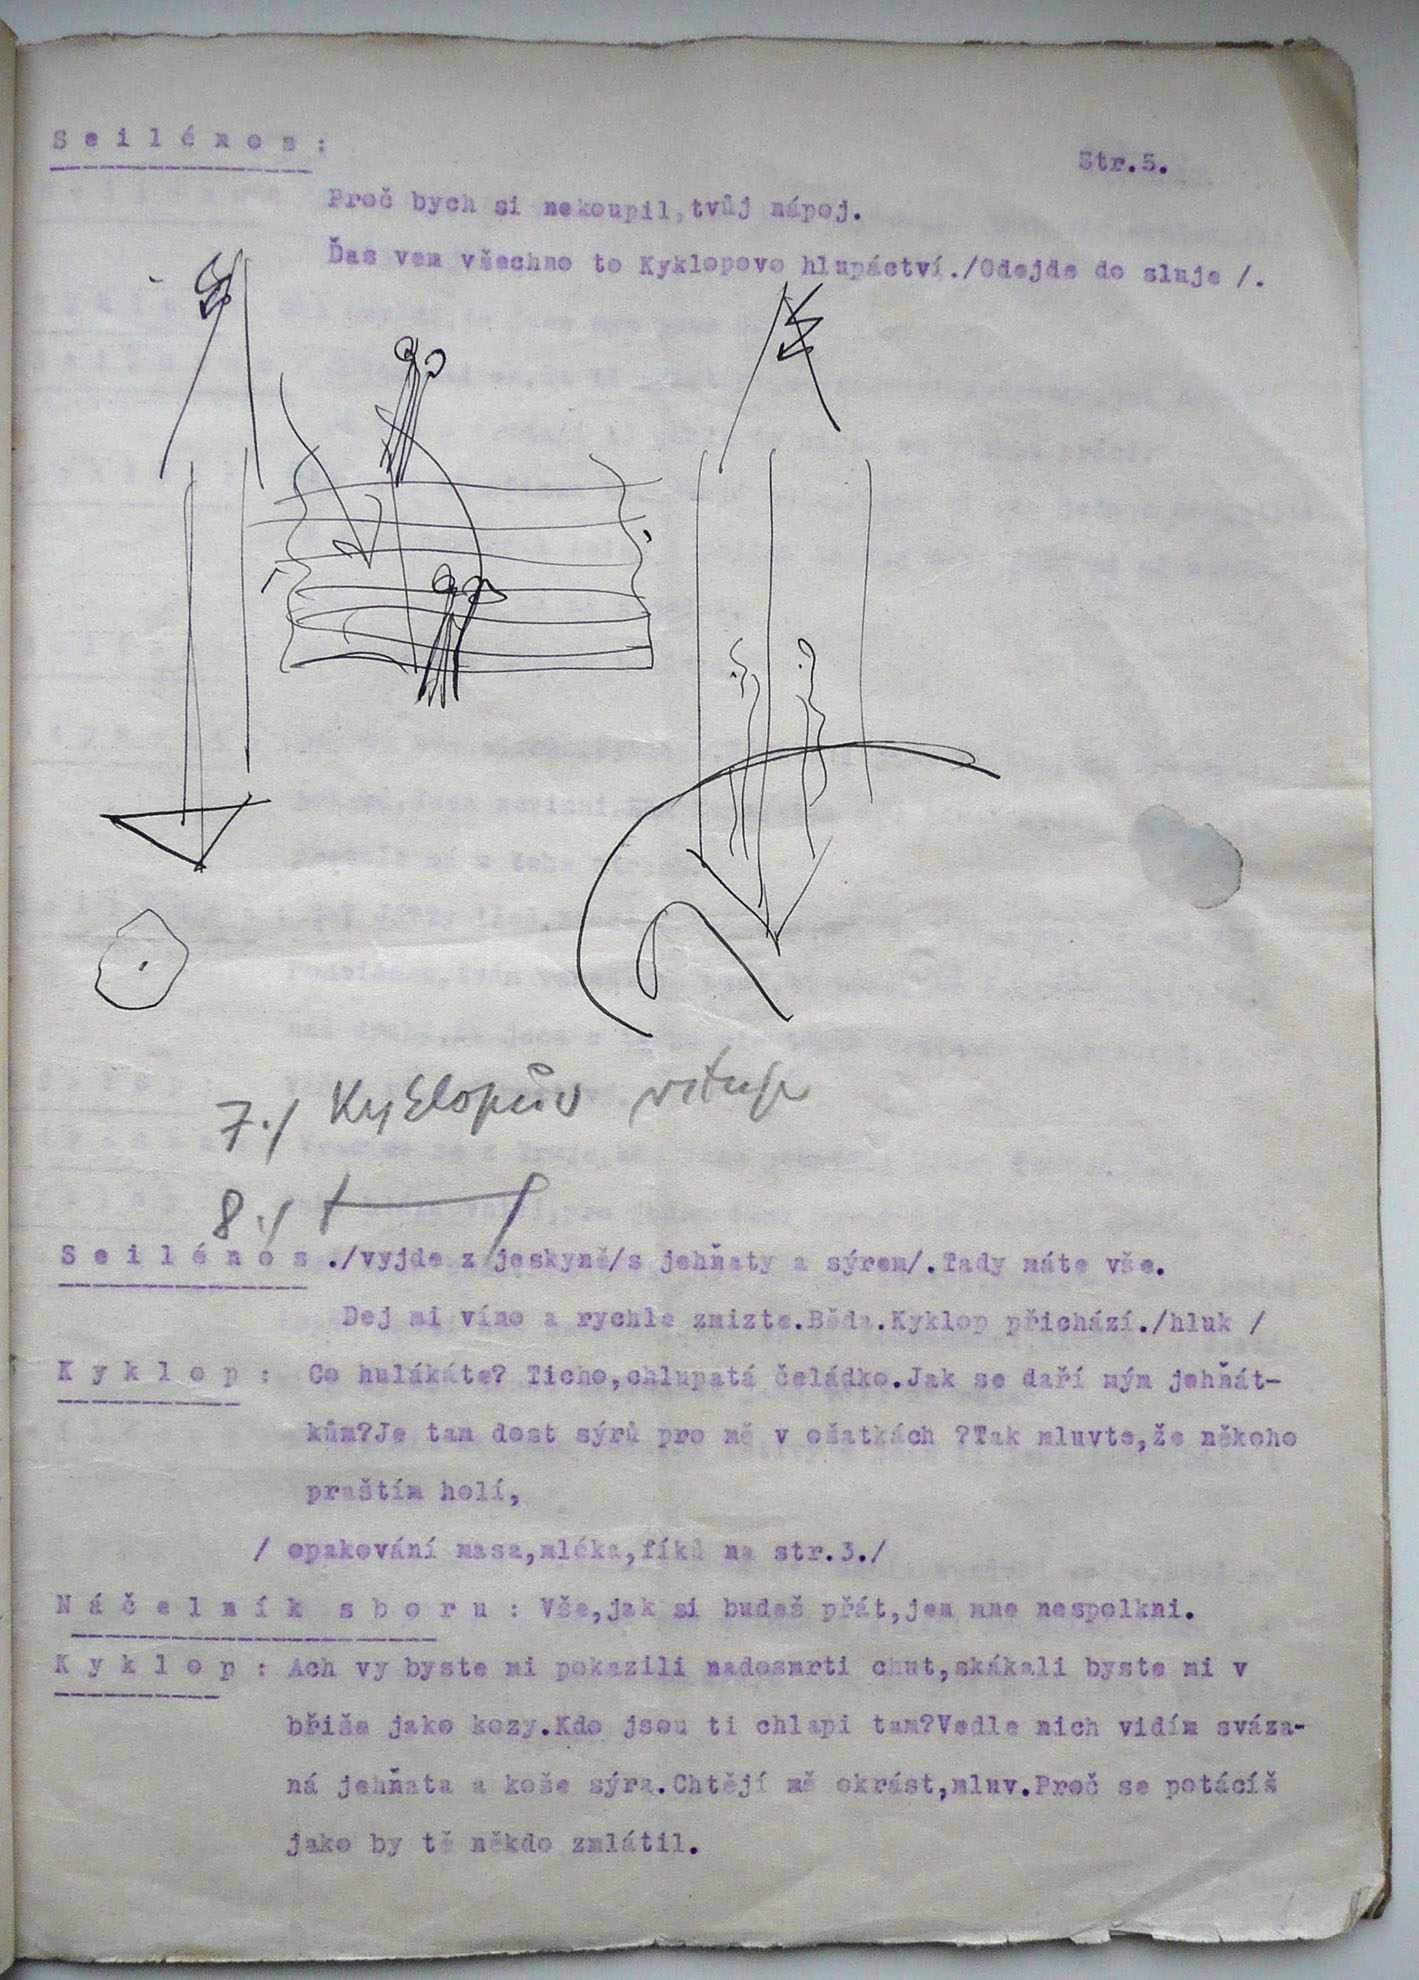 Seilénos:
Str.5.
Proč bych si nekoupil,tvůj nápoj.
Ďas vem všechno to Kyklopovo hlupáctví./Odejde do sluje /.
7./ Kyklopův
8./
Seilénos ./vyjde z jeskyně/s jehňaty a sýrem/.Tady máte vše.
Dej mi víno a rychle zmizte.Běda.Kyklop přichází./hluk /
Kyklop: Co hulákáte? Ticho,chlupatá čeládko.Jak se daří mým jehňát-
kům?Je tam dost sýrů pro mě v ošatkách ?Tak mluvte,že někoho
praštím holí,
/ opakování masa,mléka,fíků na str.3./
Náčelník sboru: Vše,jak si budeš přát,jen mne nespolkni.
Kyklop: Ach vy byste mi pokazili nadosmrti chut,skákali byste mi v
břiše jako kozy.Kdo jsou ti chlapi tam?Vedle nich vidím sváza-
ná jehňata a koše sýra.Chtějí mě okrást,mluv.Proč se potácíš
jako by tě někdo zmlátil.